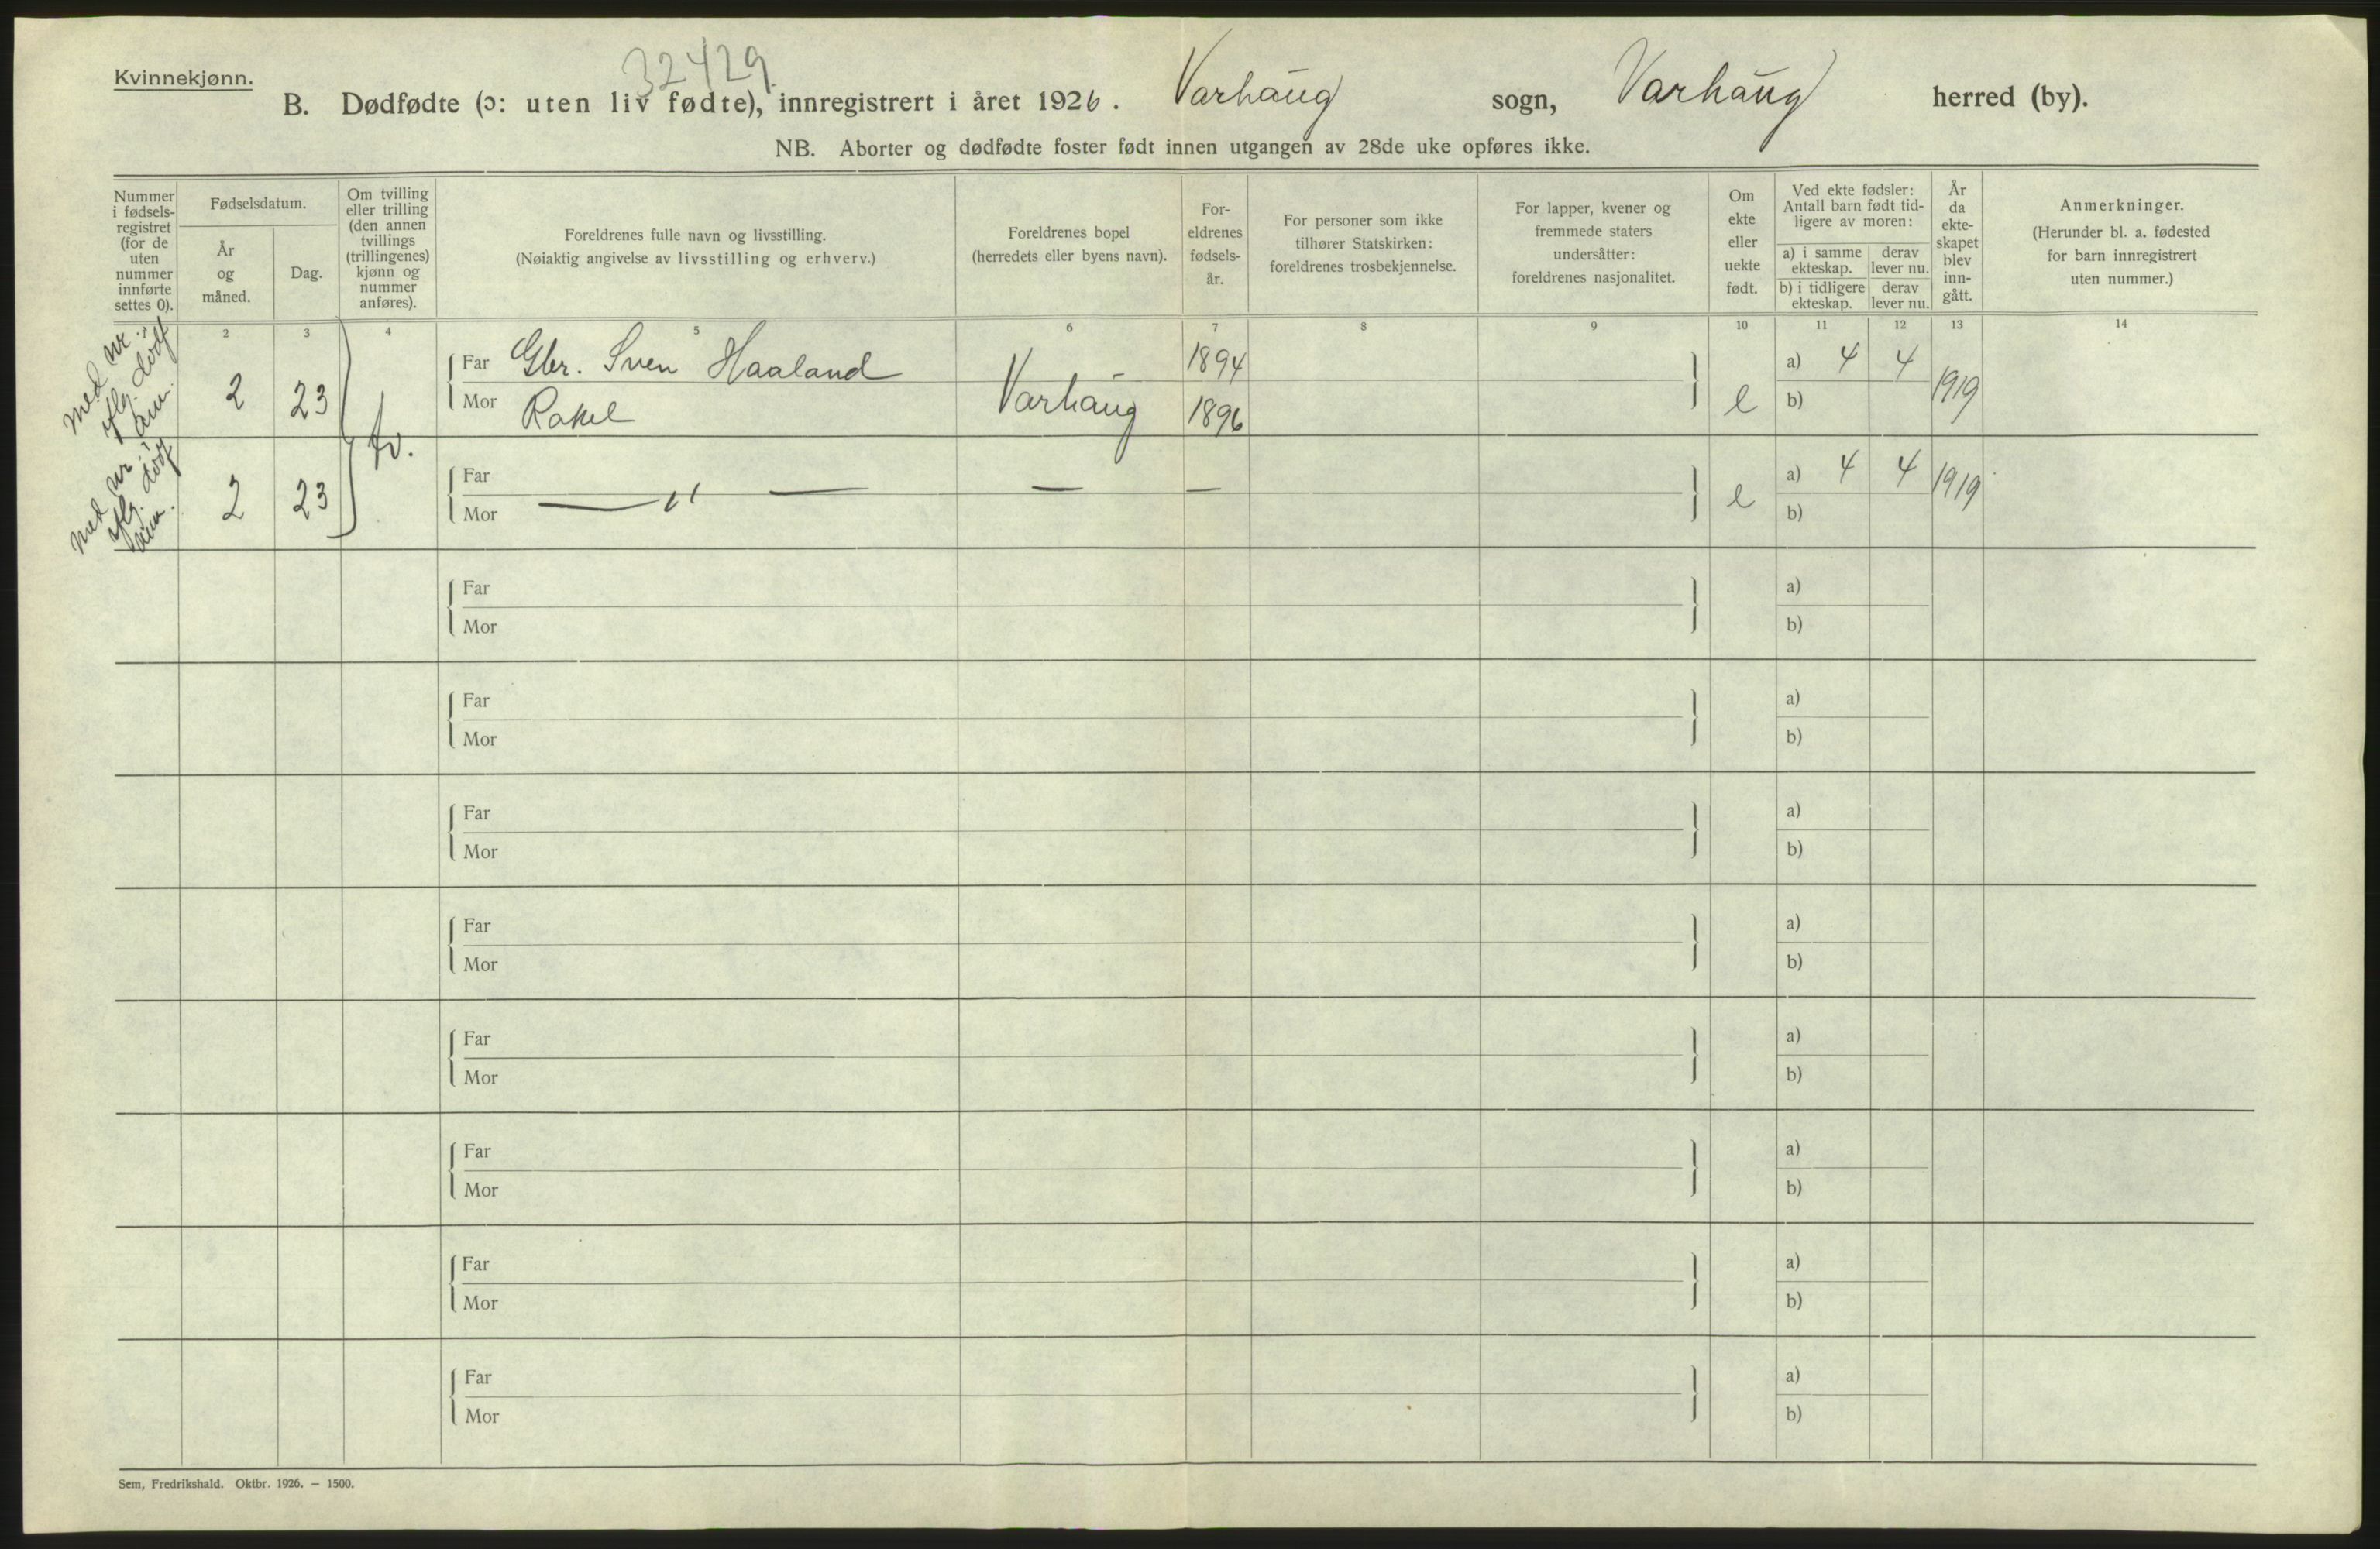 Kvinnekjønn.
32429
B. Dødfødte (ɔ: uten liv fødte), innregistrert i året 1926. Varhaug sogn, Varhaug herred (by).
NB. Aborter og dødfødte foster født innen utgangen av 28de uke opføres ikke.
Nummer i fødsels-registret (for de uten nummer innførte settes 0).
Fødselsdatum.
År og måned.
Dag.
Om tvilling eller trilling (den annen tvillings (trillingenes) kjønn og nummer anføres).
Foreldrenes fulle navn og livsstilling.
(Nøiaktig angivelse av livsstilling og erhverv.)
Foreldrenes bopel
(herredets eller byens navn).
For-eldrenes fødsels-år.
For personer som ikke tilhører Statskirken: foreldrenes trosbekjennelse.
For lapper, kvener og fremmede staters undersåtter: foreldrenes nasjonalitet.
Om ekte eller uekte født.
Ved ekte fødsler: Antall barn født tid-ligere av moren:
a) i samme ekteskap. derav lever nu.
b) i tidligere ekteskap. derav lever nu.
År da ekte-skapet blev inn-gått.
Anmerkninger.
(Herunder bl. a. fødested for barn innregistrert uten nummer.)
1 2 3 4 5 6 7 8 9 10 11 12 13 14
med nr.
2 23 tv. Far Gbr. Sven Haaland Varhaug 1894 e a) 4 4 1919
Mor Rakel 1896 b)
med nr.
2 23 Far — " — — — e a) 4 4 1919
Mor b)
Far a)
Mor b)
Far a)
Mor b)
Far a)
Mor b)
Far a)
Mor b)
Far a)
Mor b)
Far a)
Mor b)
Far a)
Mor b)
Far a)
Mor b)
Sem, Fredrikshald. Oktbr. 1926. — 1500.